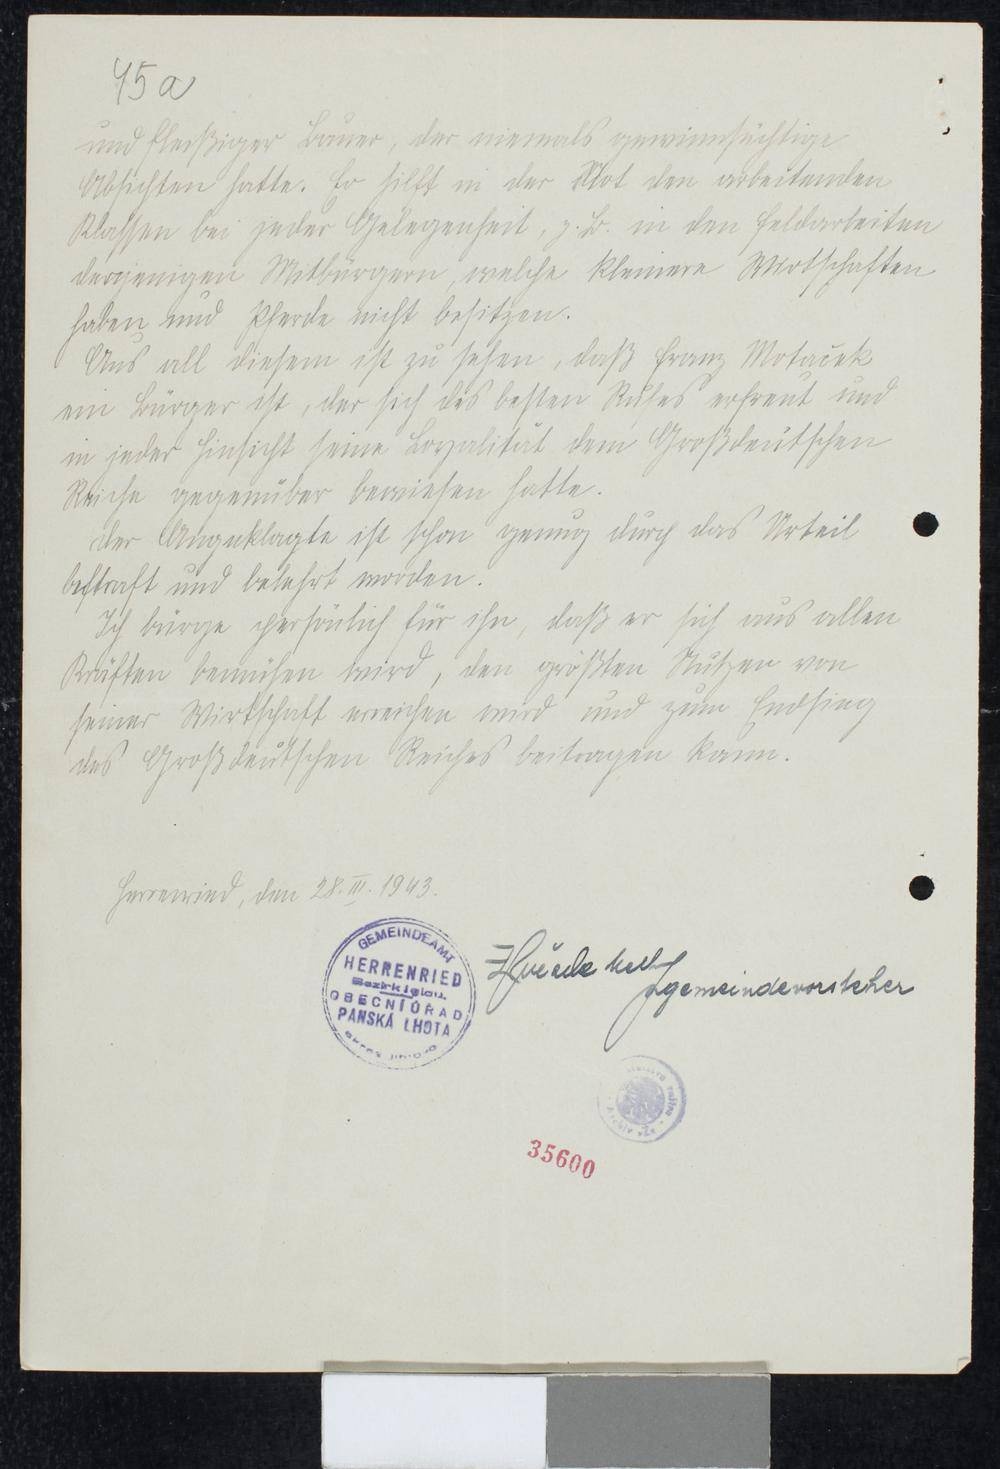 45a
und fleißiger Bauer, der niemals gewinnsüchtige
Absichten hatte. Er hilft in der Not den arbeitenden
Klassen bei jeder Gelegenheit, z. B. in den Feldarbeiten
derjenigen Mitbürgern, welche kleinere Wirtschaften
haben und Pferde nicht besitzen.
Aus all diesem ist zu sehen, daß Franz Motaček
ein Bürger ist, der sich des besten Rufes erfreut und
in jeder Hinsicht seine Loyalität dem Großdeutschen
Reiche gegenüber bewiesen hatte.
Der Angeklagte ist schon genug durch das Urteil
bestraft und belehrt worden.
Ich bürge persönlich für ihn, daß er sich aus allen
Kräften bemühen wird, den größten Nutzen von
seiner Wirtschaft erreichen wird und zum Endsieg
des Großdeutschen Reiches beitragen kann.
Herrenried, den 28. III. 1943.
GEMEINDEAMT
HERRENRIED
Bezirk Iglau.
OBECNÍ ÚŘAD
PANSKÁ LHOTA
okres Jihlava
Gemeindevorsteher
35600